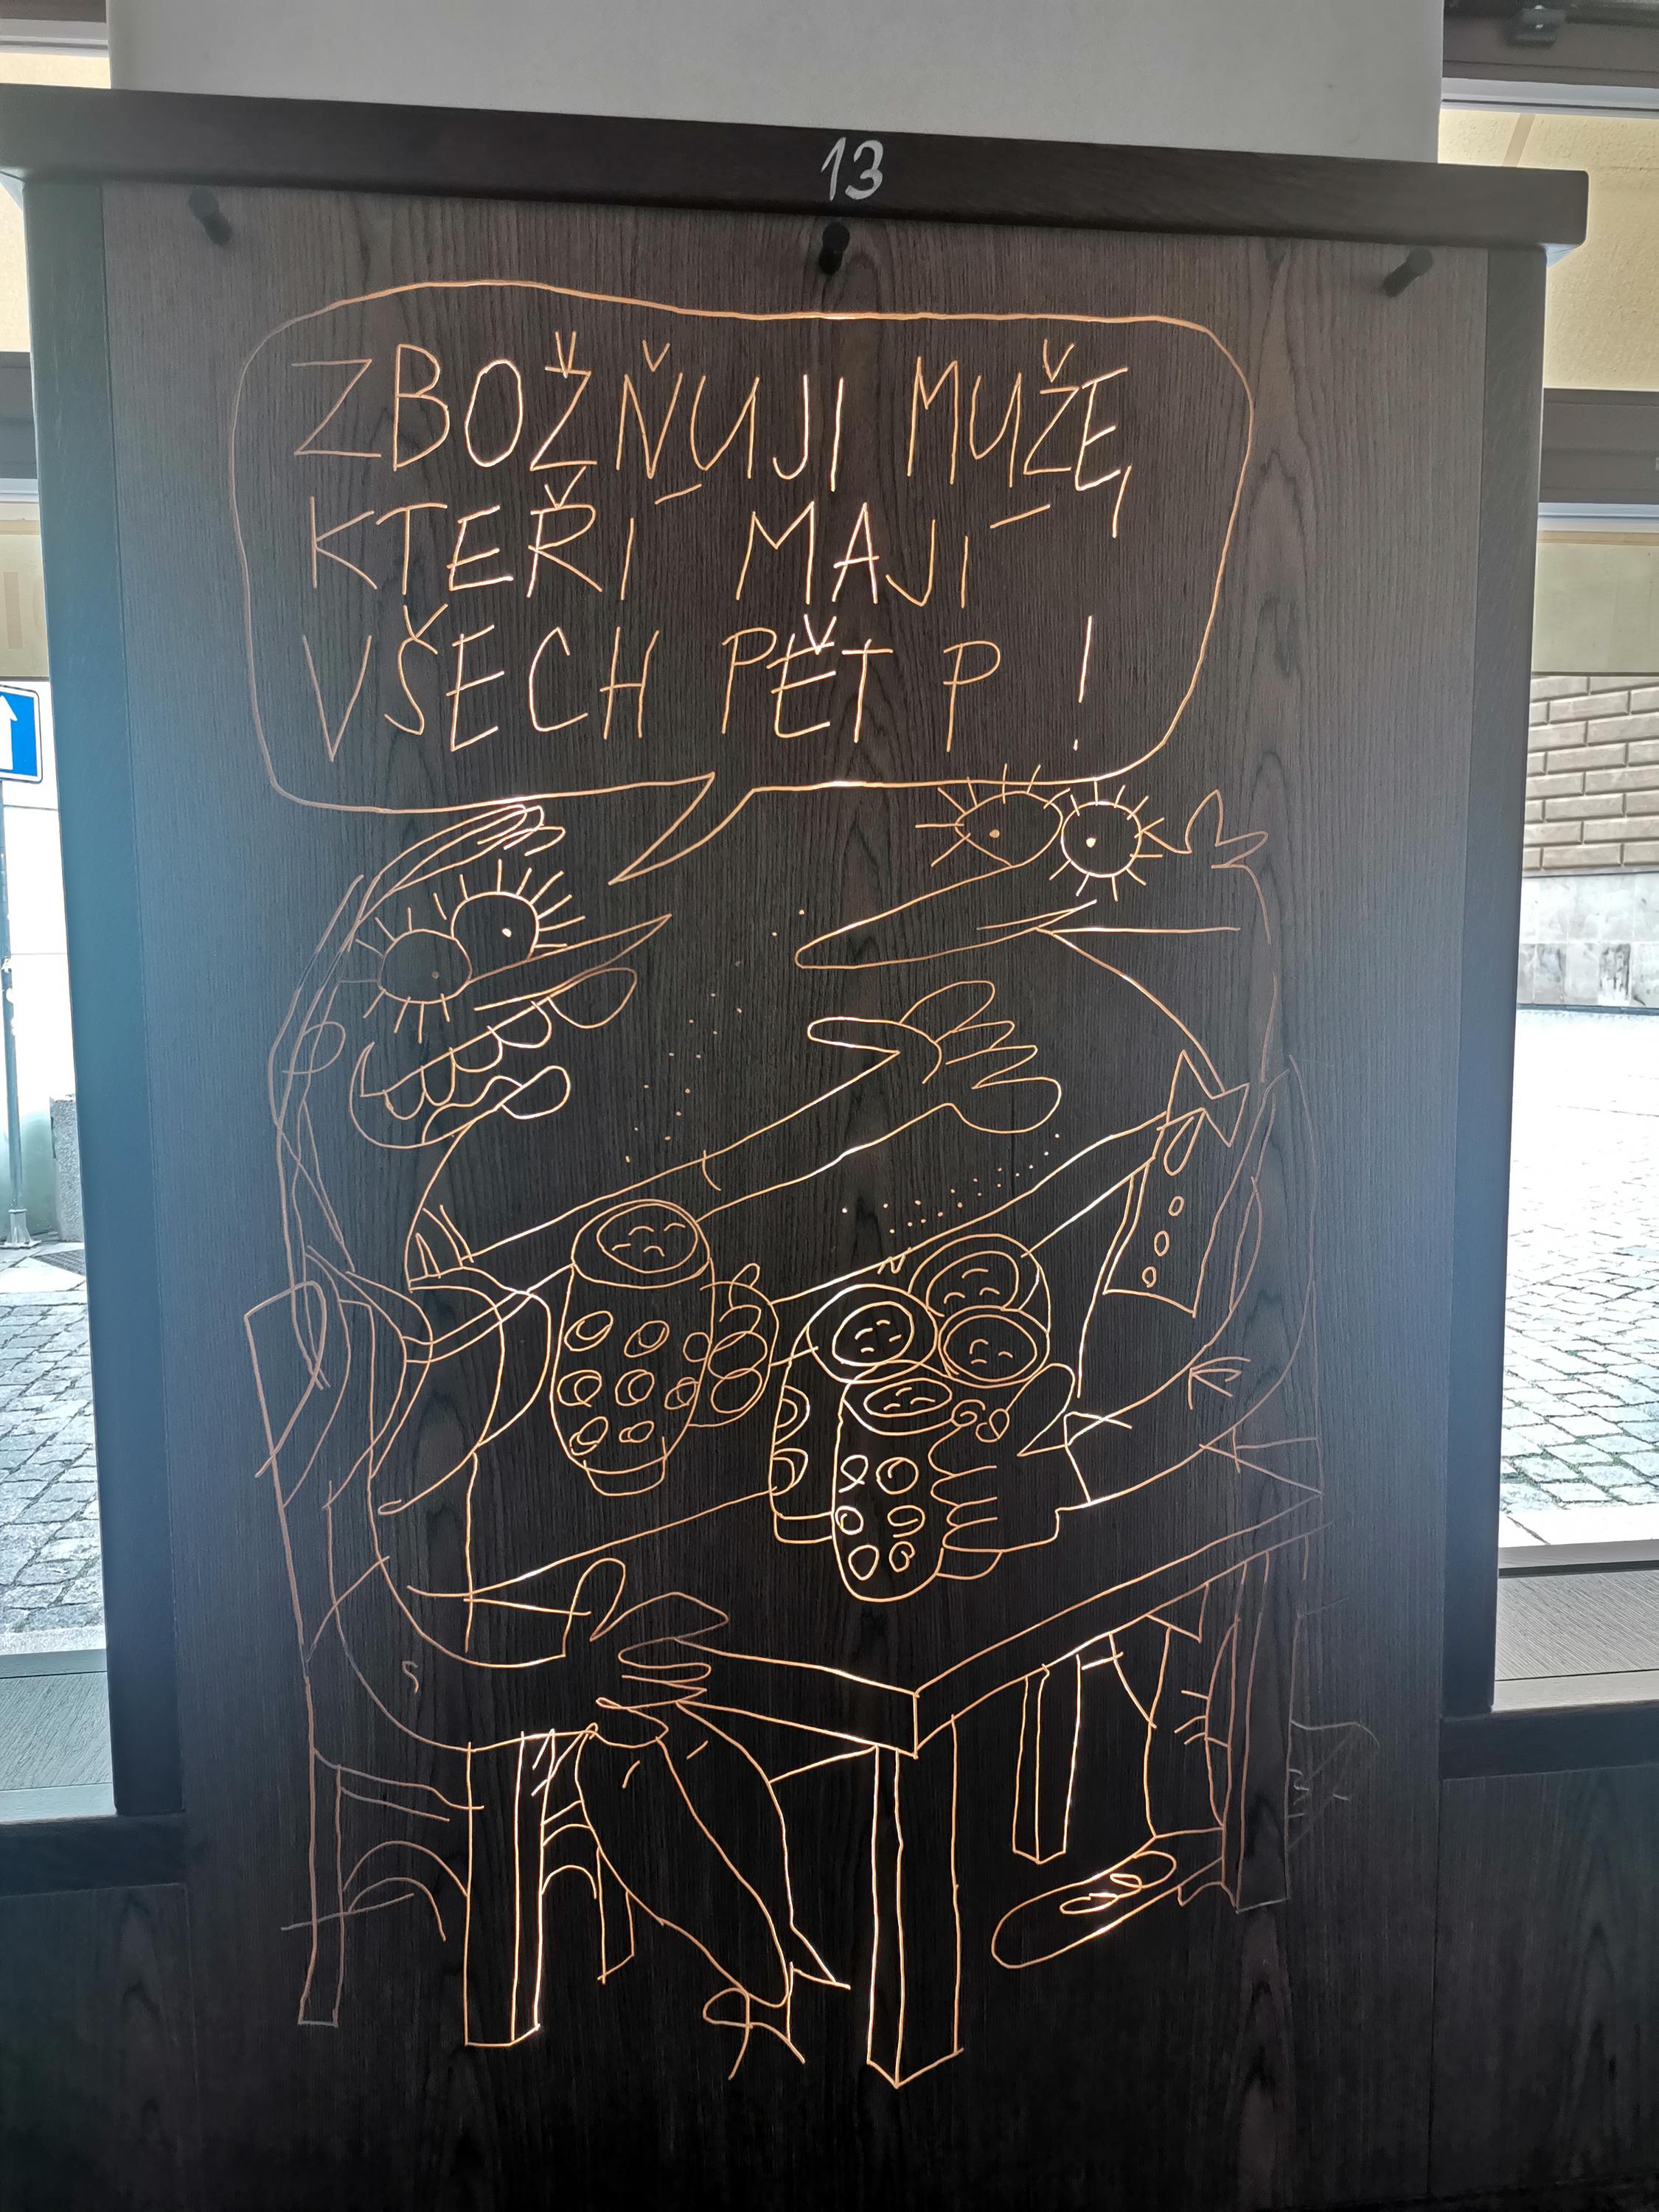 13
ZBOŽŇUJI MUŽE,
KTEŘÍ MAJÍ
VŠECH PĚT P !